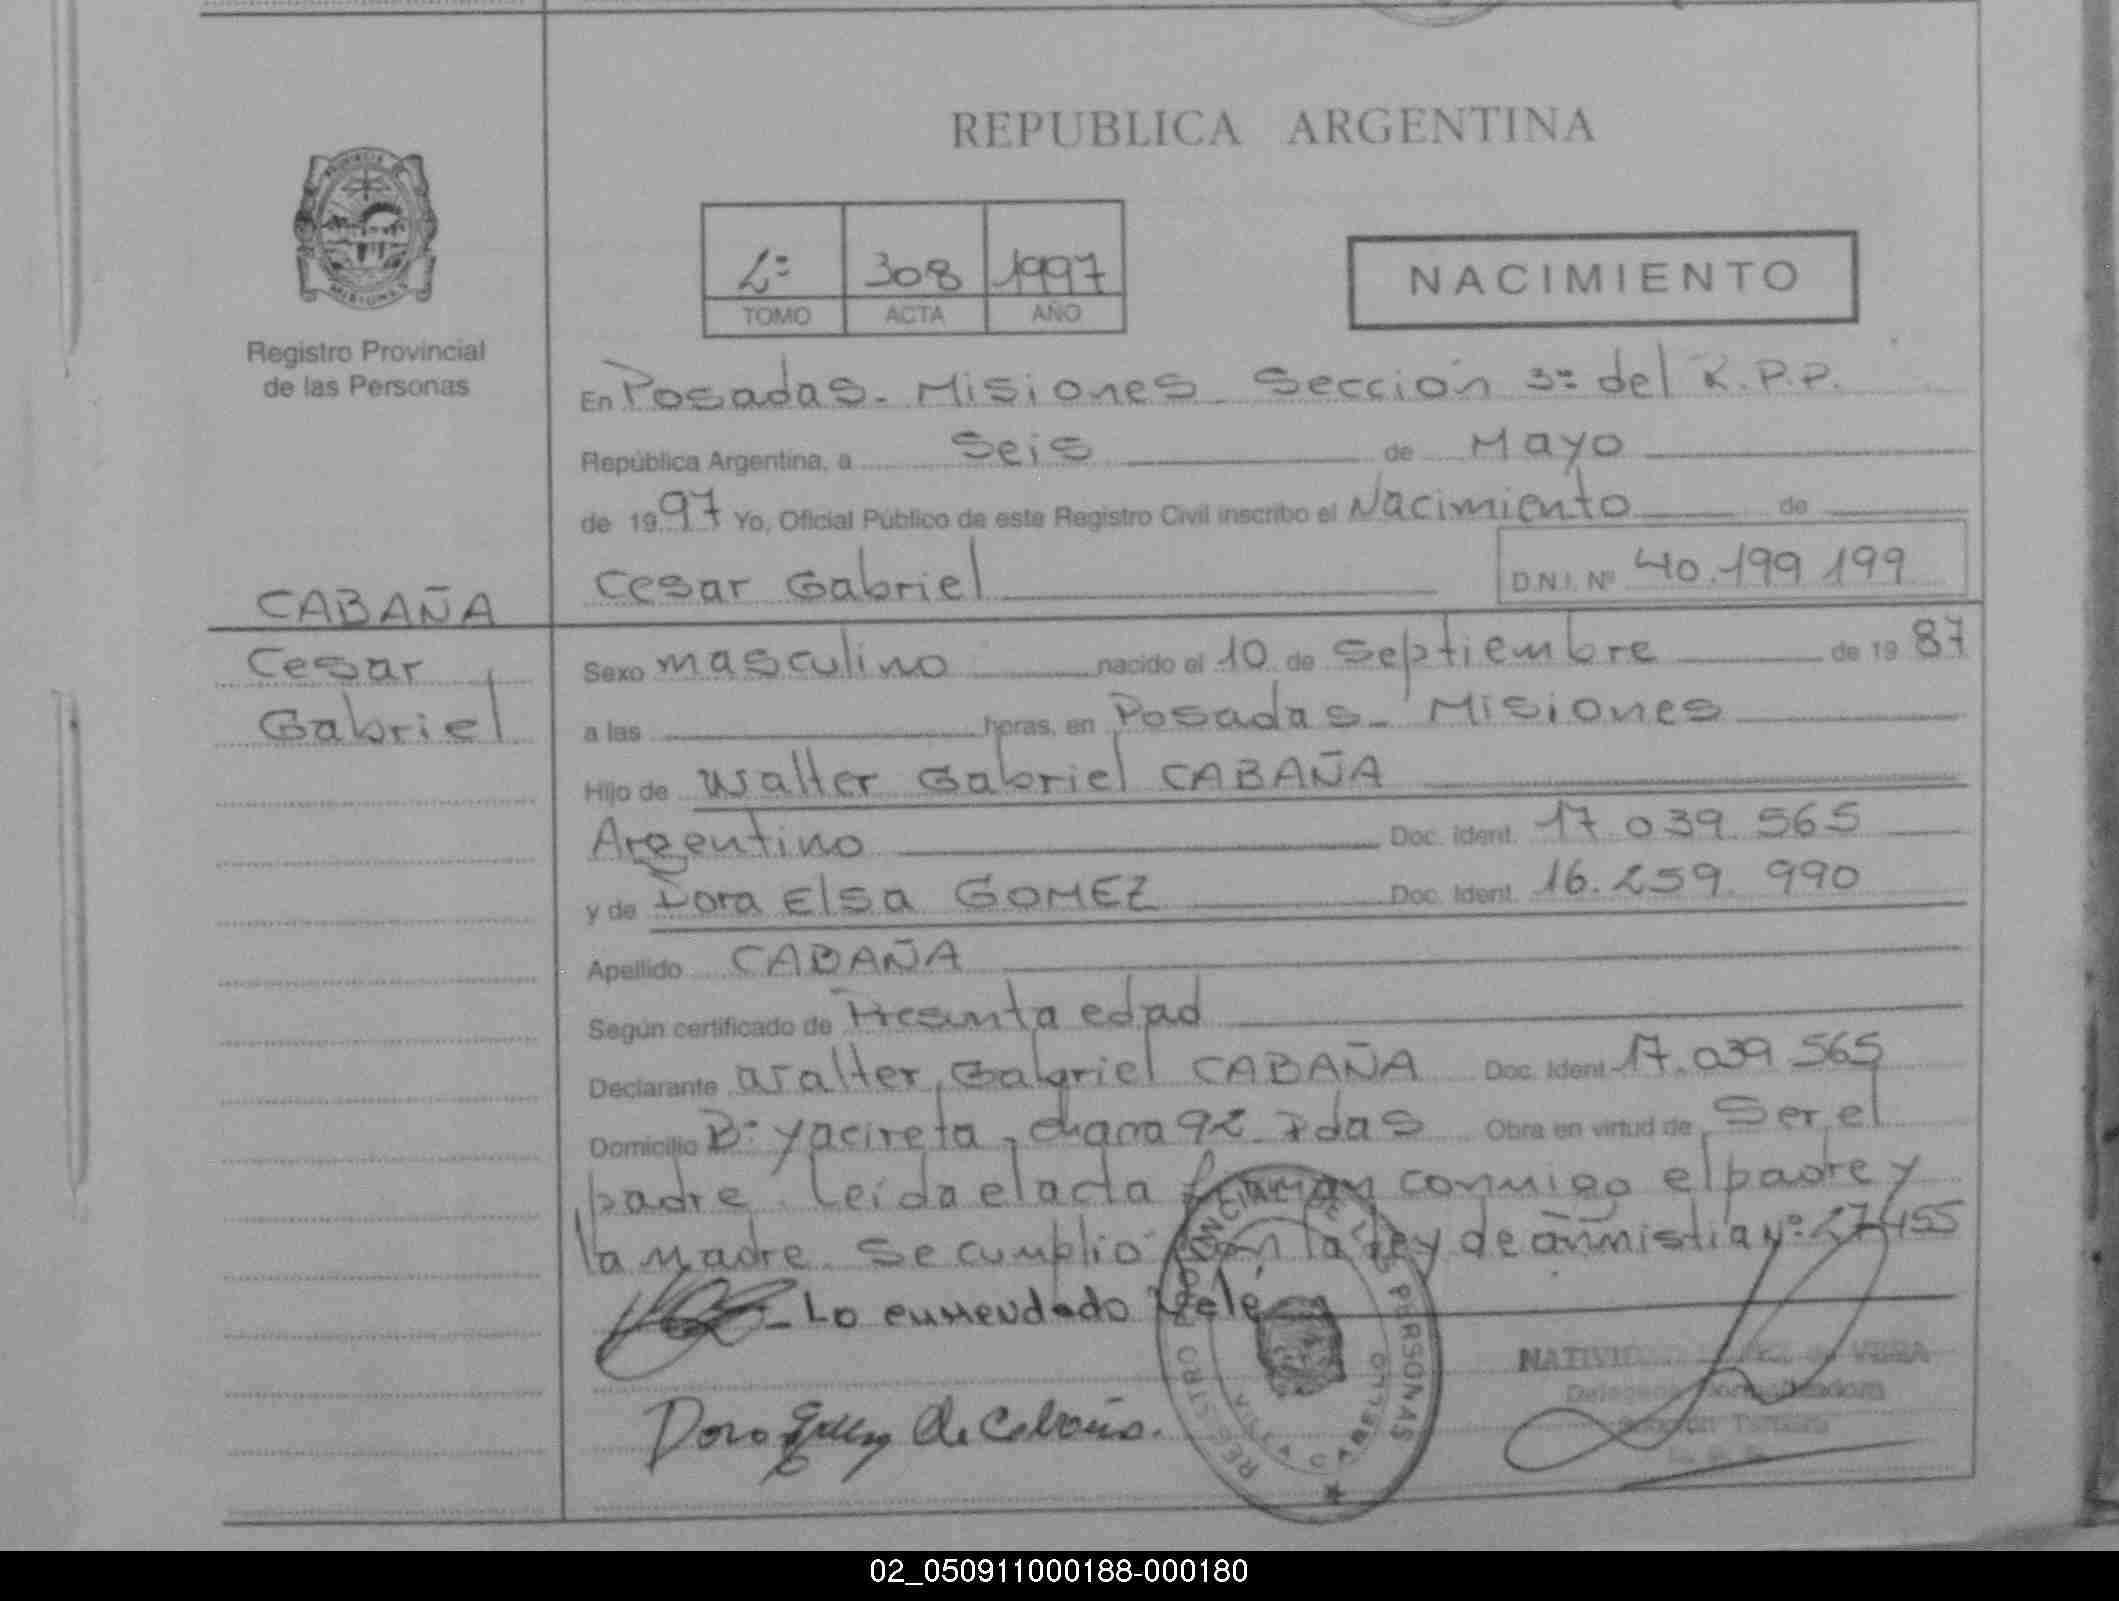 REPUBLICA ARGENTINA
2º 308 1997
TOMO ACTA AÑO
NACIMIENTO
Registro Provincial
de las Personas
En Posadas - Misiones Sección 3º del R.P.P.
República Argentina, a Seis de Mayo
de 1997 Yo, Oficial Público de este Registro Civil inscribo el Nacimiento de
CABAÑA
Cesar Gabriel D.N.I. Nº 40.199 199
Cesar
Gabriel
Sexo masculino nacido el 10 de Septiembre de 1987
a las horas, en Posadas - Misiones
Hijo de Walter Gabriel CABAÑA
Argentino Doc. Ident. 17 039 565
y de Dora Elsa GOMEZ Doc. Ident. 16.259 990
Apellido CABAÑA
Según certificado de Presunta edad
Declarante Walter Gabriel CABAÑA Doc. Ident 17.039 565
Domicilio Bº Yacireta, chacra 92 Pdas Obra en virtud de Ser el
padre. Leida el acta firman conmigo el padre y
la madre. Se cumplio con la ley de amnistia Nº
- Lo enmendado Vale
Dora de Cabaña.
REGISTRO PROVINCIAL DE LAS PERSONAS
NATIVIDAD VERA
Delegada Normalizadora
Sección Tercera
R. P. P.
02_050911000188-000180